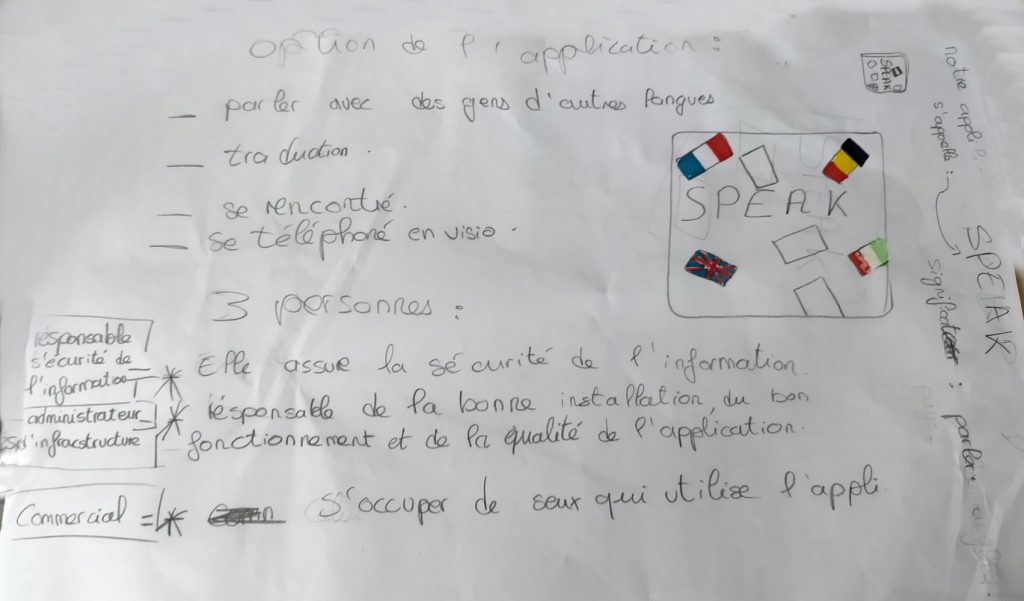 option de l'application :
_ parler avec des gens d'autres langues
_ traduction.
_ se rencontré.
_ se téléphoné en visio.
SPEAK
3 personnes :
résponsable
s'écurité de
l'information
* Elle assue la sécurité de l'information.
administrateur
d'infrastructure
* résponsable de la bonne installation, du bon
fonctionnement et de la qualité de l'application.
Commercial
* S'occuper de seux qui utilise l'appli
SPEAK
notre appli
s'appelle :
SPEAK
signification : parler.